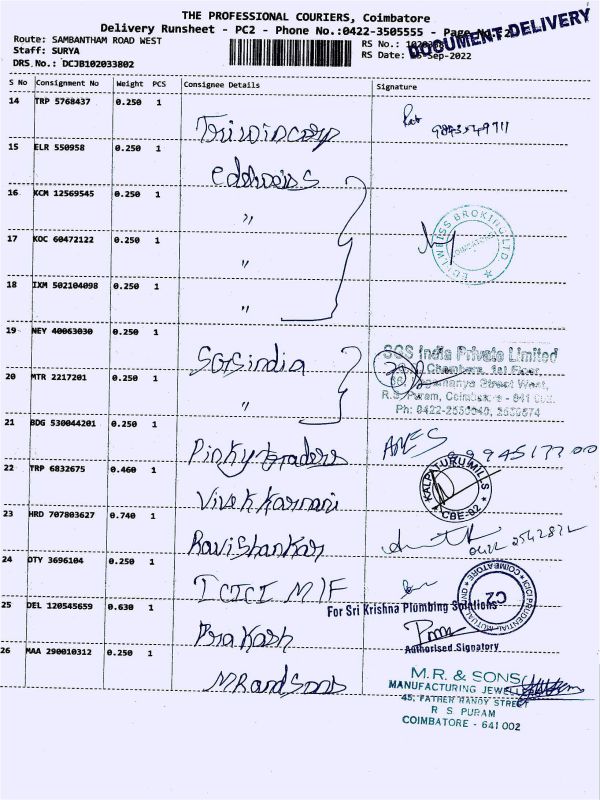 THE PROFESSIONAL COURIERS, Coimbatore
Delivery Runsheet - PC2 - Phone No.:0422-3505555 - Page No.:2
DOCUMENT-DELIVERY
Route: SAMBANTHAM ROAD WEST
RS No.:
Staff: SURYA
RS Date: -Sep-2022
DRS No.: DCJB102033802
S No Consignment No Weight PCS Consignee Details Signature
14 TRP 5768437 0.250 1
Triwincorp
15 ELR 550958 0.250 1
edelweiss
16 KCM 12569545 0.250 1
"
17 KOC 60472122 0.250 1
"
EDELWEISS BROKING LTD
COIMBATORE
18 IXM 502104098 0.250 1
"
19 NEY 40063030 0.250 1
SGS india
SGS India Private Limited
Chambers, 1st Floor,
20 MTR 2217201 0.250 1
"
Street West,
R.S. Puram, Coimbatore - 641 002.
Ph: 0422-
21 BDG 530044201 0.250 1
Pinky traders
22 TRP 6832675 0.460 1
Vivek Karnani
KALPATURU MILLS
CBE-02
23 HRD 707803627 0.740 1
Ravishankar
0422 2542872
24 OTY 3696104 0.250 1
ICICI M/F
ICICI PRUDENTIAL MUTUAL FUND
COIMBATORE
C2
25 DEL 120545659 0.630 1
For Sri Krishna Plumbing Solutions
Prakash
Authorised Signatory
26 MAA 290010312 0.250 1
MR and Sons
M.R. & SONS
MANUFACTURING JEWELL
45, FATHER RANDY STREET
R S PURAM
COIMBATORE - 641 002